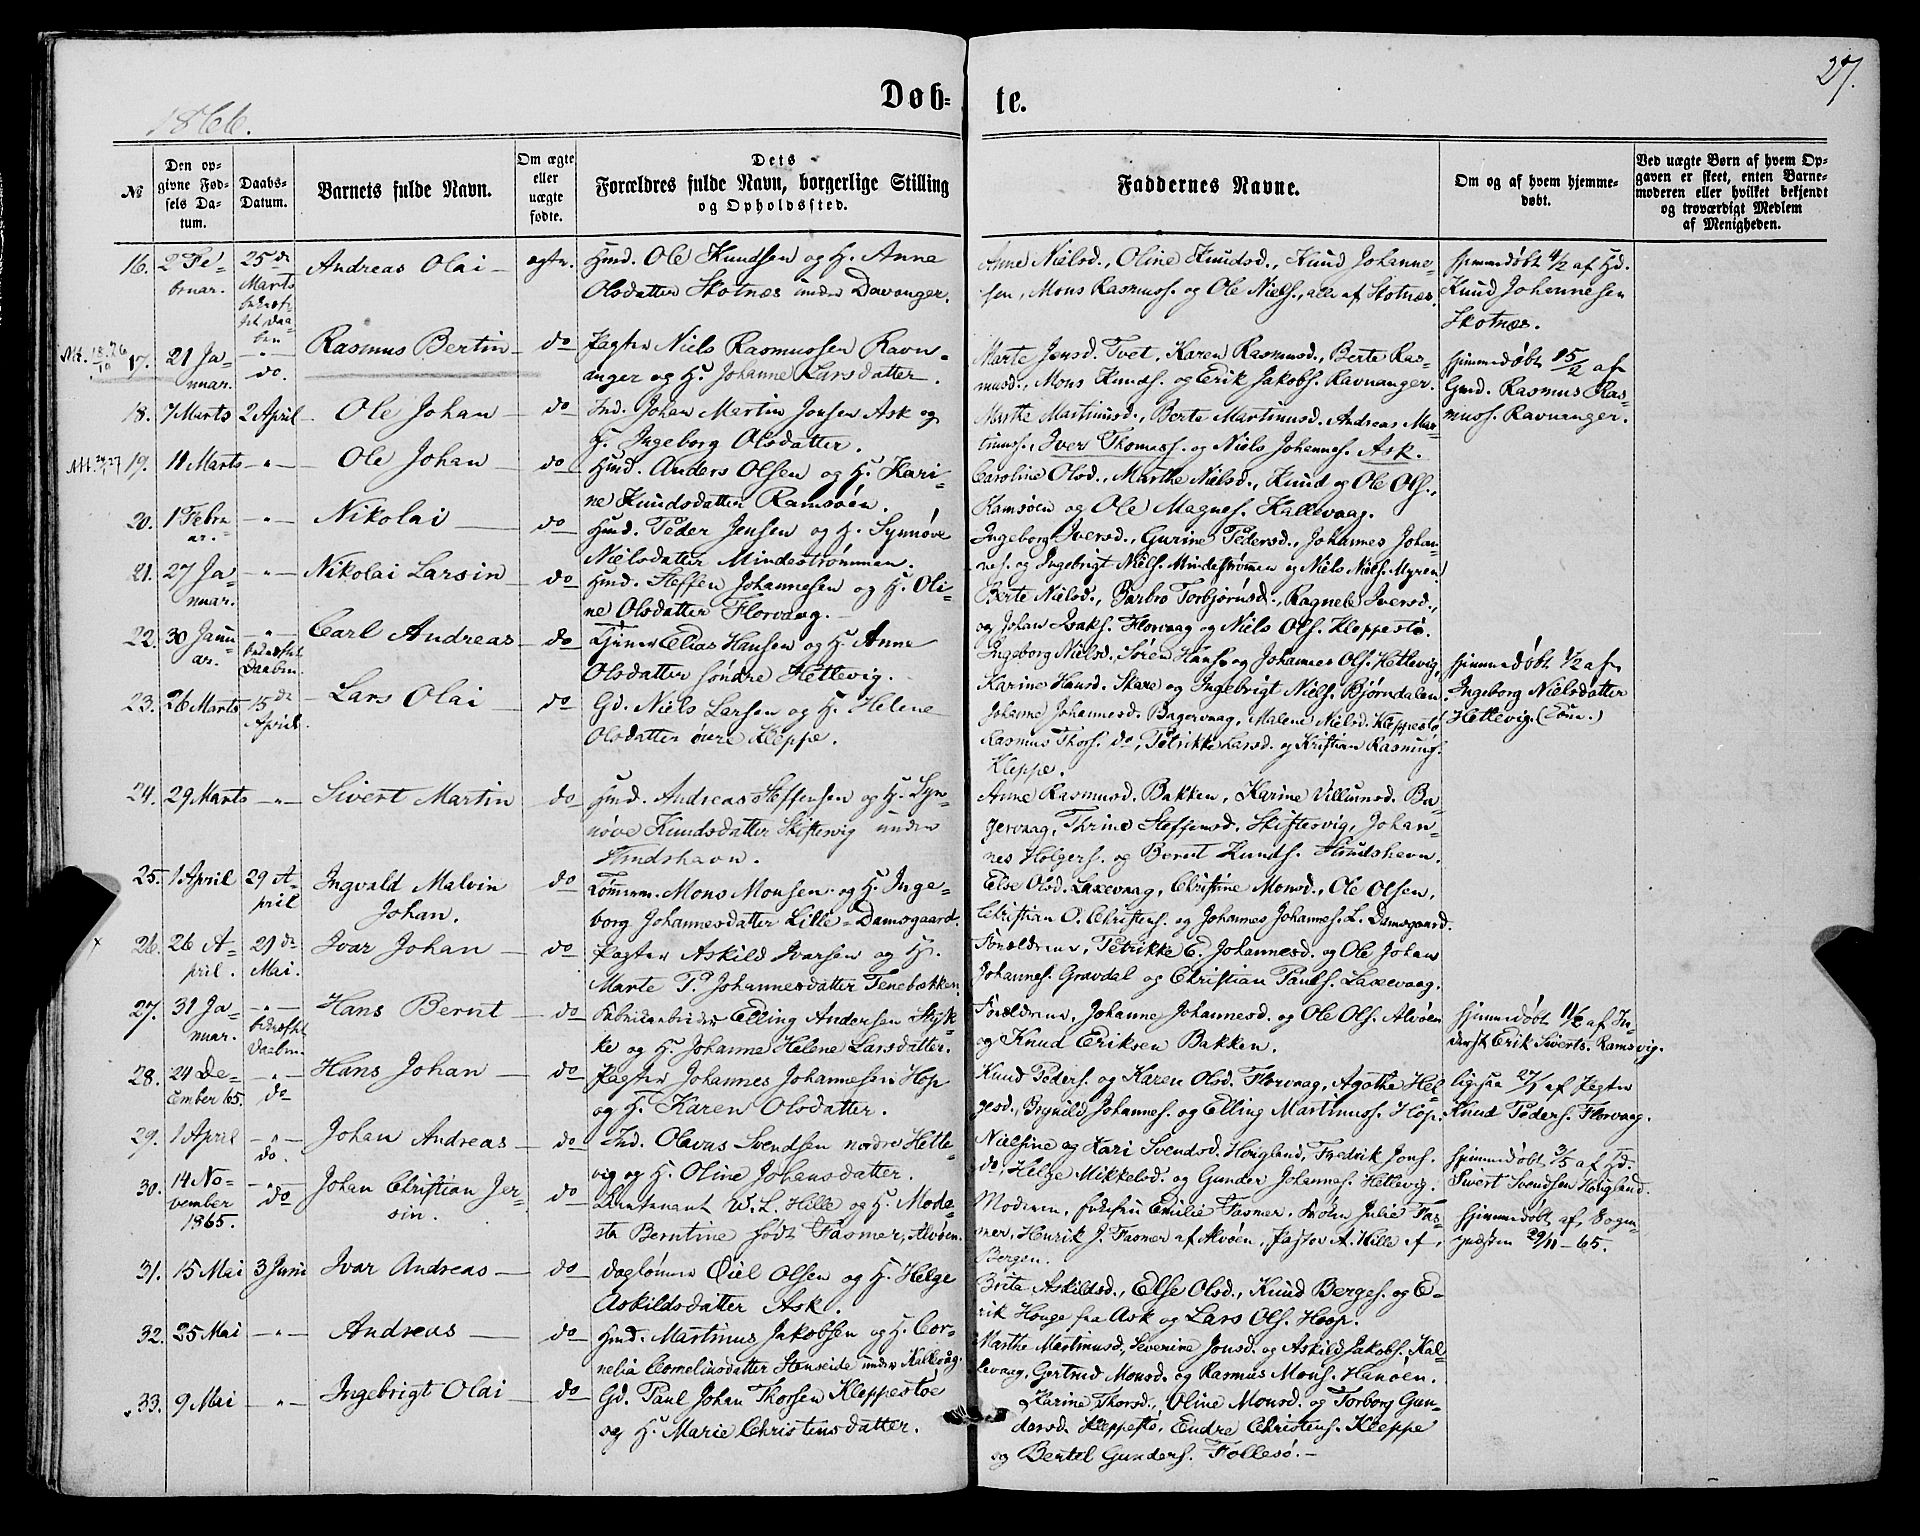 27.
1866.
Døb-te.
№
Den opgivne Fødsels Datum.
Daabs-Datum.
Barnets fulde Navn.
Om ægte eller uægte fødte.
Dets Forældres fulde Navn, borgerlige Stilling og Opholdssted.
Faddernes Navne.
Om og af hvem hjemmedøbt.
Ved uægte Børn af hvem Opgaven er skeet, enten Barnemoderen eller hvilket bekjendt og troværdigt Medlem af Menigheden.
16. 2 Februar. 25de Marts Andreas Olai Hmd. Ole Knudsen og H. Anne
Olsdatter Skotnæs under Davanger.
Anne Nielsd., Oline Knudsd., Knud Johanne-
sen, Mons Rasmuss. og Ole Niels., alle af Skotnæs.
hjemmedøbt 4/2 af Hd.
Knud Johannesen
Skotnæs.
17. 21 Januar. do. Rasmus Bertin do Niels Rasmussen Ravn-
anger og H. Johanne Larsdatter.
Marte Jensd. Tvet, Karen Rasmusd., Berte Ras-
musd., Mons Knuds. og Erik Jakobs. Ravnanger.
hjemmedøbt 15/2 af
Gmd. Rasmus Ras-
muss. Ravnanger.
18. 7 Marts 2 April Ole Johan do Ind. Johan Martin Jonsen Ask og
H. Ingeborg Olsdatter.
Marthe Martinusd., Berte Martinusd. Andreas Mar-
tinuss., Iver Thomass. og Niels Johannes. Ask.
19. 11 Marts -"- Ole Johan do Hmd. Anders Olsen og H. Kari-
ne Knudsdatter Ramsøen.
Caroline Olsd., Marthe Nielsd., Knud og Ole Ols.,
Ramsøen og Ole Magnes. Kallevaag.
20. 1 Februar. -"- Nikolai do Hmd. Peder Jensen og H. Synnøve
Nielsdatter Mindestrømmen.
Ingeborg Iversd., Gurine Pedersd., Johannes Johan-
nes. og Ingebrigt Niels. Mindestrømen og Niels Niels. Myren.
21. 27 Januar. -"- Nikolai Larsin do Hmd. Steffen Johannesen og H. Oli-
ne Olsdatter Florvaag.
Berte Nielsd., Barbro Torbjørnsd., Ragnele Iversd.,
og Johan Isaks. Florvaag og Niels Ols. Kleppestø.
22. 30 Januar. -"- Carl Andreas do Elias Hansen og H. Anne
Olsdatter søndre Hettevig.
Ingeborg Nielsd., Søren Hans. og Johannes Ols. Hettevig,
Karine Hansd. Skare og Ingebrigt Niels. Bjørndalen.
hjemmedøbt 1/2 af
Ingeborg Nielsdatter
Hettevig.
23. 26 Marts 15de April. Lars Olai do Gd. Niels Larsen og H. Helene
Olsdatter øvre Kleppe.
Johanne Johannesd. Bagervaag, Malene Nielsd. Kleppestø
Rasmus Thors. do, Petrikke Larsd. og Kristian Rasmus.
Kleppe.
24. 29 Marts -"- Sivert Martin do Hmd. Andreas Steffensen og H. Syn-
nøve Knudsdatter Skiftesvig under
Strudshavn.
Anne Rasmusd. Bakken, Karine Villumsd. Ba-
gervaag, Thrine Steffensd. Skiftesvig, Johan-
nes Holgers. og Bernt Knuds. Strudshavn.
25. 1 April 29 April Ingvald Malvin
Johan. do Tømmm. Mons Monsen og H. Inge-
borg Johannesdatter Lille-Damsgaard.
Else Olsd. Laxevaag, Christine Monsd., Ole Olsen,
Christian O. Christens. og Johannes Johannes. L. Damsgaard.
26. 26 April. 21de Mai. Ivar Johan do Askild Ivarsen og H.
Marte P. Johannesdatter Tenebækken.
Forældrene, Petrikke E. Johannesd. og Ole Johan
Johannes. Gravdal og Christian Pauls. Laxevaag.
27. 31 Januar. -"- Hans Bernt do Fabrikarbeider Elling Andersen Skjk-
ke og H. Johanne Helene Larsdatter.
Forældrene, Johanne Johannesd. og Ole Ols. Alvøen
og Knud Eriksen Bakken.
hjemmedøbt 11/2 af In-
derst Erik Siverts. Ramsvig.
28. 24 December 65. do Hans Johan do Johannes Johannesen Hop
og H. Karen Olsdatter.
Knud Peders. og Karen Olsd. Florvaag, Agathe Hel-
gesd., Brynild Johannes. og Elling Martinuss. Hop.
ligesaa 27/1 af
Knud Peders. Florvaag.
29. 1 April -"- do. Johan Andreas do Ind. Olavus Svendsen nordre Hette-
vig og H. Oline Johansdatter.
Nielsine og Kari Svendsd. Hougland, Fredrik Jons.
do, Helge Mikkelsd. og Gunder Johannes. Hettevig.
hjemmedøbt 3/5 af Hd.
Sivert Svendsen Hougland.
30. 14 November 1865. do Johan Christian Jer-
sin. do Lieutenant W. L. Hille og H. Mode-
sta Berntine født Fasmer, Alvøen.
Moderen, Emilie Fasmer, Frøken Julie Fas-
mer, Henrik J. Fasmer af Alvøen, Pastor A. Hille af
Bergen.
hjemmedøbt af Sogne-
præsten 29/11-65.
31. 15 Mai 3 Juni Ivar Andreas do Daglønner Eiel Olsen og H. Helge
Askildsdatter Ask.
Brita Askildsd., Else Olsd., Knud Berges. og E-
rik Houge fra Ask og Lars Ols. Hoop.
32. 25 Mai -"- Andreas do Hmd. Martinus Jakobsen og H. Cor-
nelia Cornelinsdatter Stenseide under Kallevåg.
Marthe Martinusd., Severine Jonsd. og Askild Jakobs. Kal-
levaag, Gertrud Monsd. og Rasmus Mons. Hanøen.
33. 9 Mai -"- Ingebrigt Olai do Gd. Paul Johan Thorsen Kleppestøe
og H. Marie Christensdatter.
Karine Thorsd., Oline Monsd. og Torborg Gun-
dersd. Kleppestø, Endre Christens. Kleppe
og Bertel Gunders. Follesø.